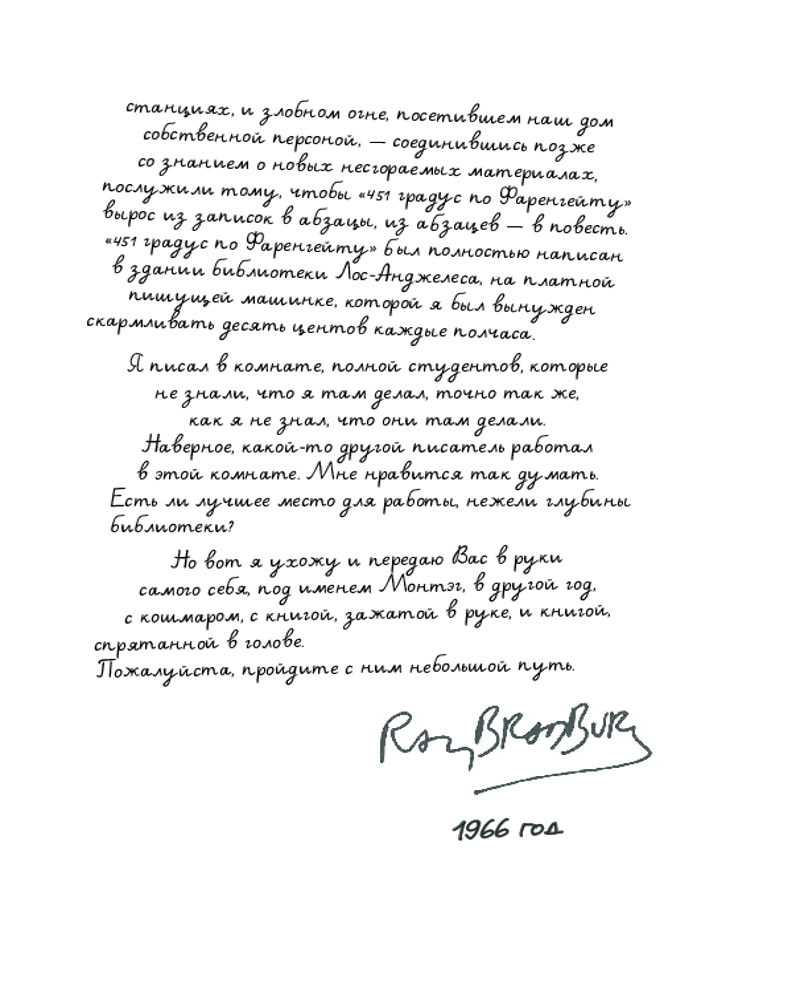 станциях, и злобном огне, посетившем наш дом
собственной персоной, — соединившись позже
со знанием о новых несгораемых материалах,
послужили тому, чтобы «451 градус по Фаренгейту»
вырос из записок в абзацы, из абзацев — в повесть.
«451 градус по Фаренгейту» был полностью написан
в здании библиотеки Лос-Анджелеса, на платной
пишущей машинке, которой я был вынужден
скармливать десять центов каждые полчаса.
Я писал в комнате, полной студентов, которые
не знали, что я там делал, точно так же,
как я не знал, что они там делали.
Наверное, какой-то другой писатель работал
в этой комнате. Мне нравится так думать.
Есть ли лучшее место для работы, нежели глубины
библиотеки?
Но вот я ухожу и передаю Вас в руки
самого себя, под именем Монтэг, в другой год,
с кошмаром, с книгой, зажатой в руке, и книгой,
спрятанной в голове.
Пожалуйста, пройдите с ним небольшой путь.
Ray Bradbury
1966 год